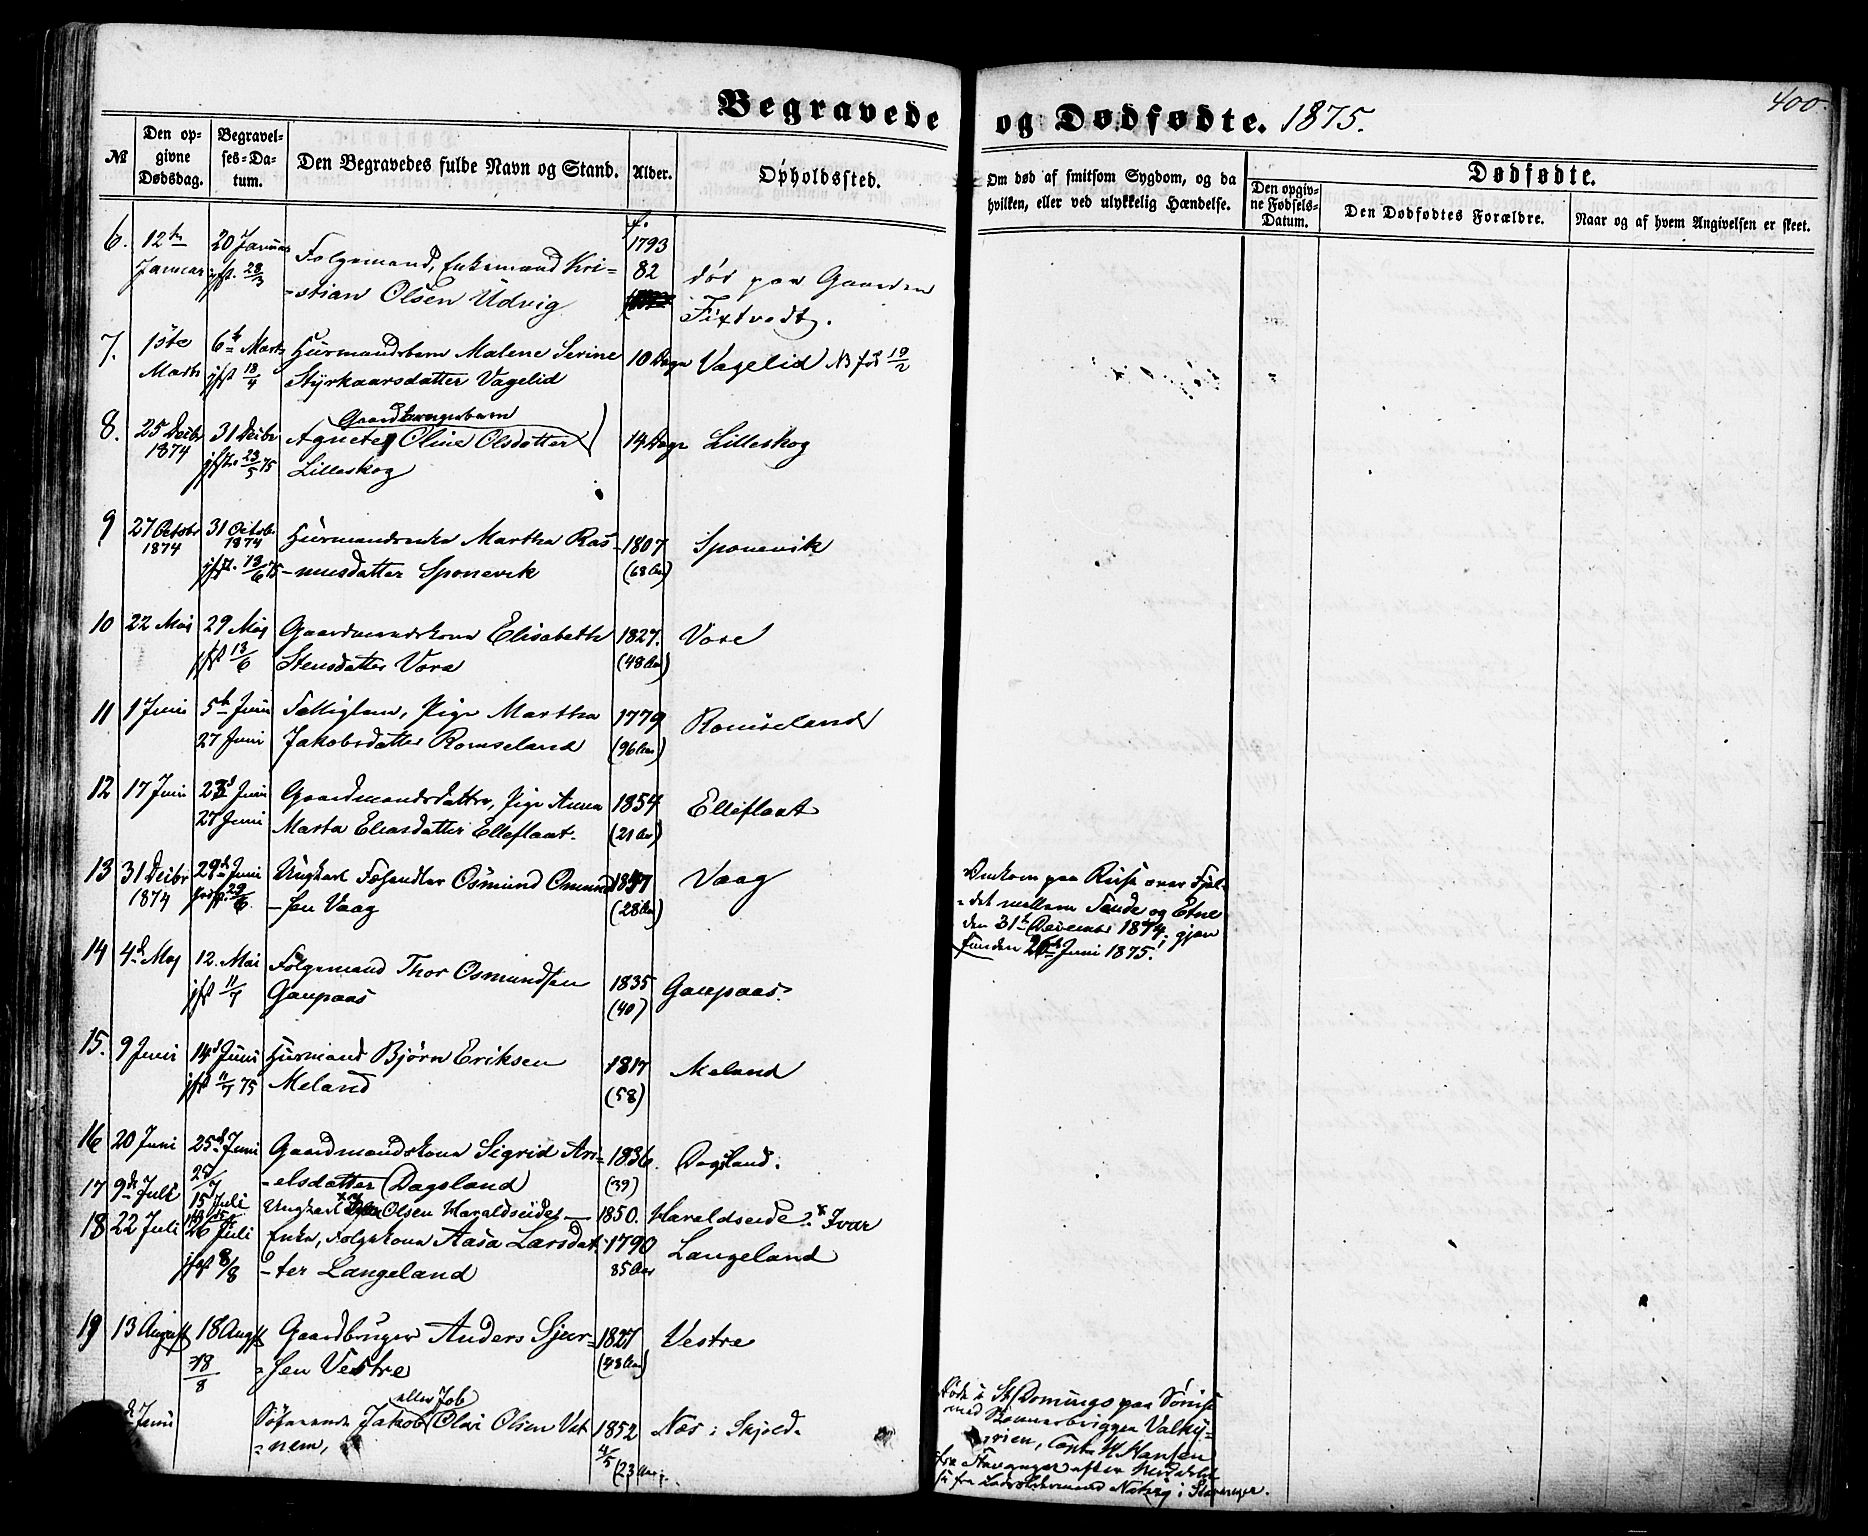 Begravede og Dødfødte. 1875.
400.
№
Den opgivne Dødsdag.
Begravelses-Datum.
Den Begravedes fulde Navn og Stand.
Alder.
Opholdssted.
Om død af smitsom Sygdom, og da hvilken, eller ved ulykkelig Hændelse.
Dødfødte.
Den opgivne Fødsels-Datum.
Den Dødfødtes Forældre.
Naar og af hvem Angivelsen er skeet.
6. 12te 20 Januar Folgemand, Enkemand Kri- f. 1793
Januar jfst. 28/3 -stian Olsen Udvig 82 død paa Gaarden
Tixtvedt.
7. 1ste 6te Marts Huusmandsbarn Malene Serine 10 Dage Vagelid NB fød 19/2
Marts jfst 18/4 Styrkaarsdatter Vagelid
Gaardbrugerbarn
8. 25 Decbr 31 Decbr Agnete Oline Olsdatter 14 Dage Lilleskog
1874 jfst. 23/5 75 Lilleskog
9 27 Octobr 31 Octobr Huusmandsenke Martha Ras- 1807 Sponevik
1874 1874
jfst. 13/6 75 -musdatter Sponevik (68 Aar)
10 22 Mai 29 Mai Gaardmandskone Elisabeth 1827. Vore
jfst 13/6 Stensdatter Vore (48 Aar)
11 1 Juni 5te Juni Fattiglem, Pige Martha 1779 Romseland
27 Juni Jakobsdatter Romseland (96 Aar)
12 17 Juni 23d Juni Gaardmandsdatter, Pige Anna 1854 Elleflaat
27 Juni Marta Eliasdatter Elleflaat. (21 Aar)
13 31 Decbr 29de Juni Ungkarl Fæhandler Osmund Omund- 1847 Vaag
1874 jordf. 29/6 -sen Vaag (28 Aar)
Omkom paa Reise over Fjel-
-det mellem Sande og Etne
den 31te December 1874; gjen
funden 26de Juni 1875.
14 4de Maj 12. Mai Folgemand Thor Osmundsen 1835 Gaupaas.
jfst 11/7 Gaupaas (40)
15. 9 Juni 14de Juni Huusmand Bjørn Eriksen 1817 Meland
jfst 11/7 75 Meland (58)
16 20 Juni 25de Juni Gaardmandskone Sigrid Ari- 1836. Dagsland.
25/7 -elsdatter Dagsland (39)
17 9de Juli 15 Juli Ungkarl Olsen Haraldseide 1850. Haraldseide. × Ivar
18 22 Juli 26 Juli Enke, Folgekone Aasa Larsdat- 1790 Langeland
jfst 8/8 -ter Langeland 85 Aar
19 13 August 18 Augst Gaardbruger Anders Sjur- 1827 Vestre
18/8 -sen Vestre (48 Aar)
eller Job
Juni Søfarende Jakob Olai Olsen Vat- 1852 Næs i Skjold.
-nem, 4/5 (23 Aar).
Døde i St. Domingo paa Søreise
med Skonnerbriggen Valky-
-rien, Capt. H. Hansen
fra Stavanger efter Meddelel
se fra Lodsoldermand i Stavanger.